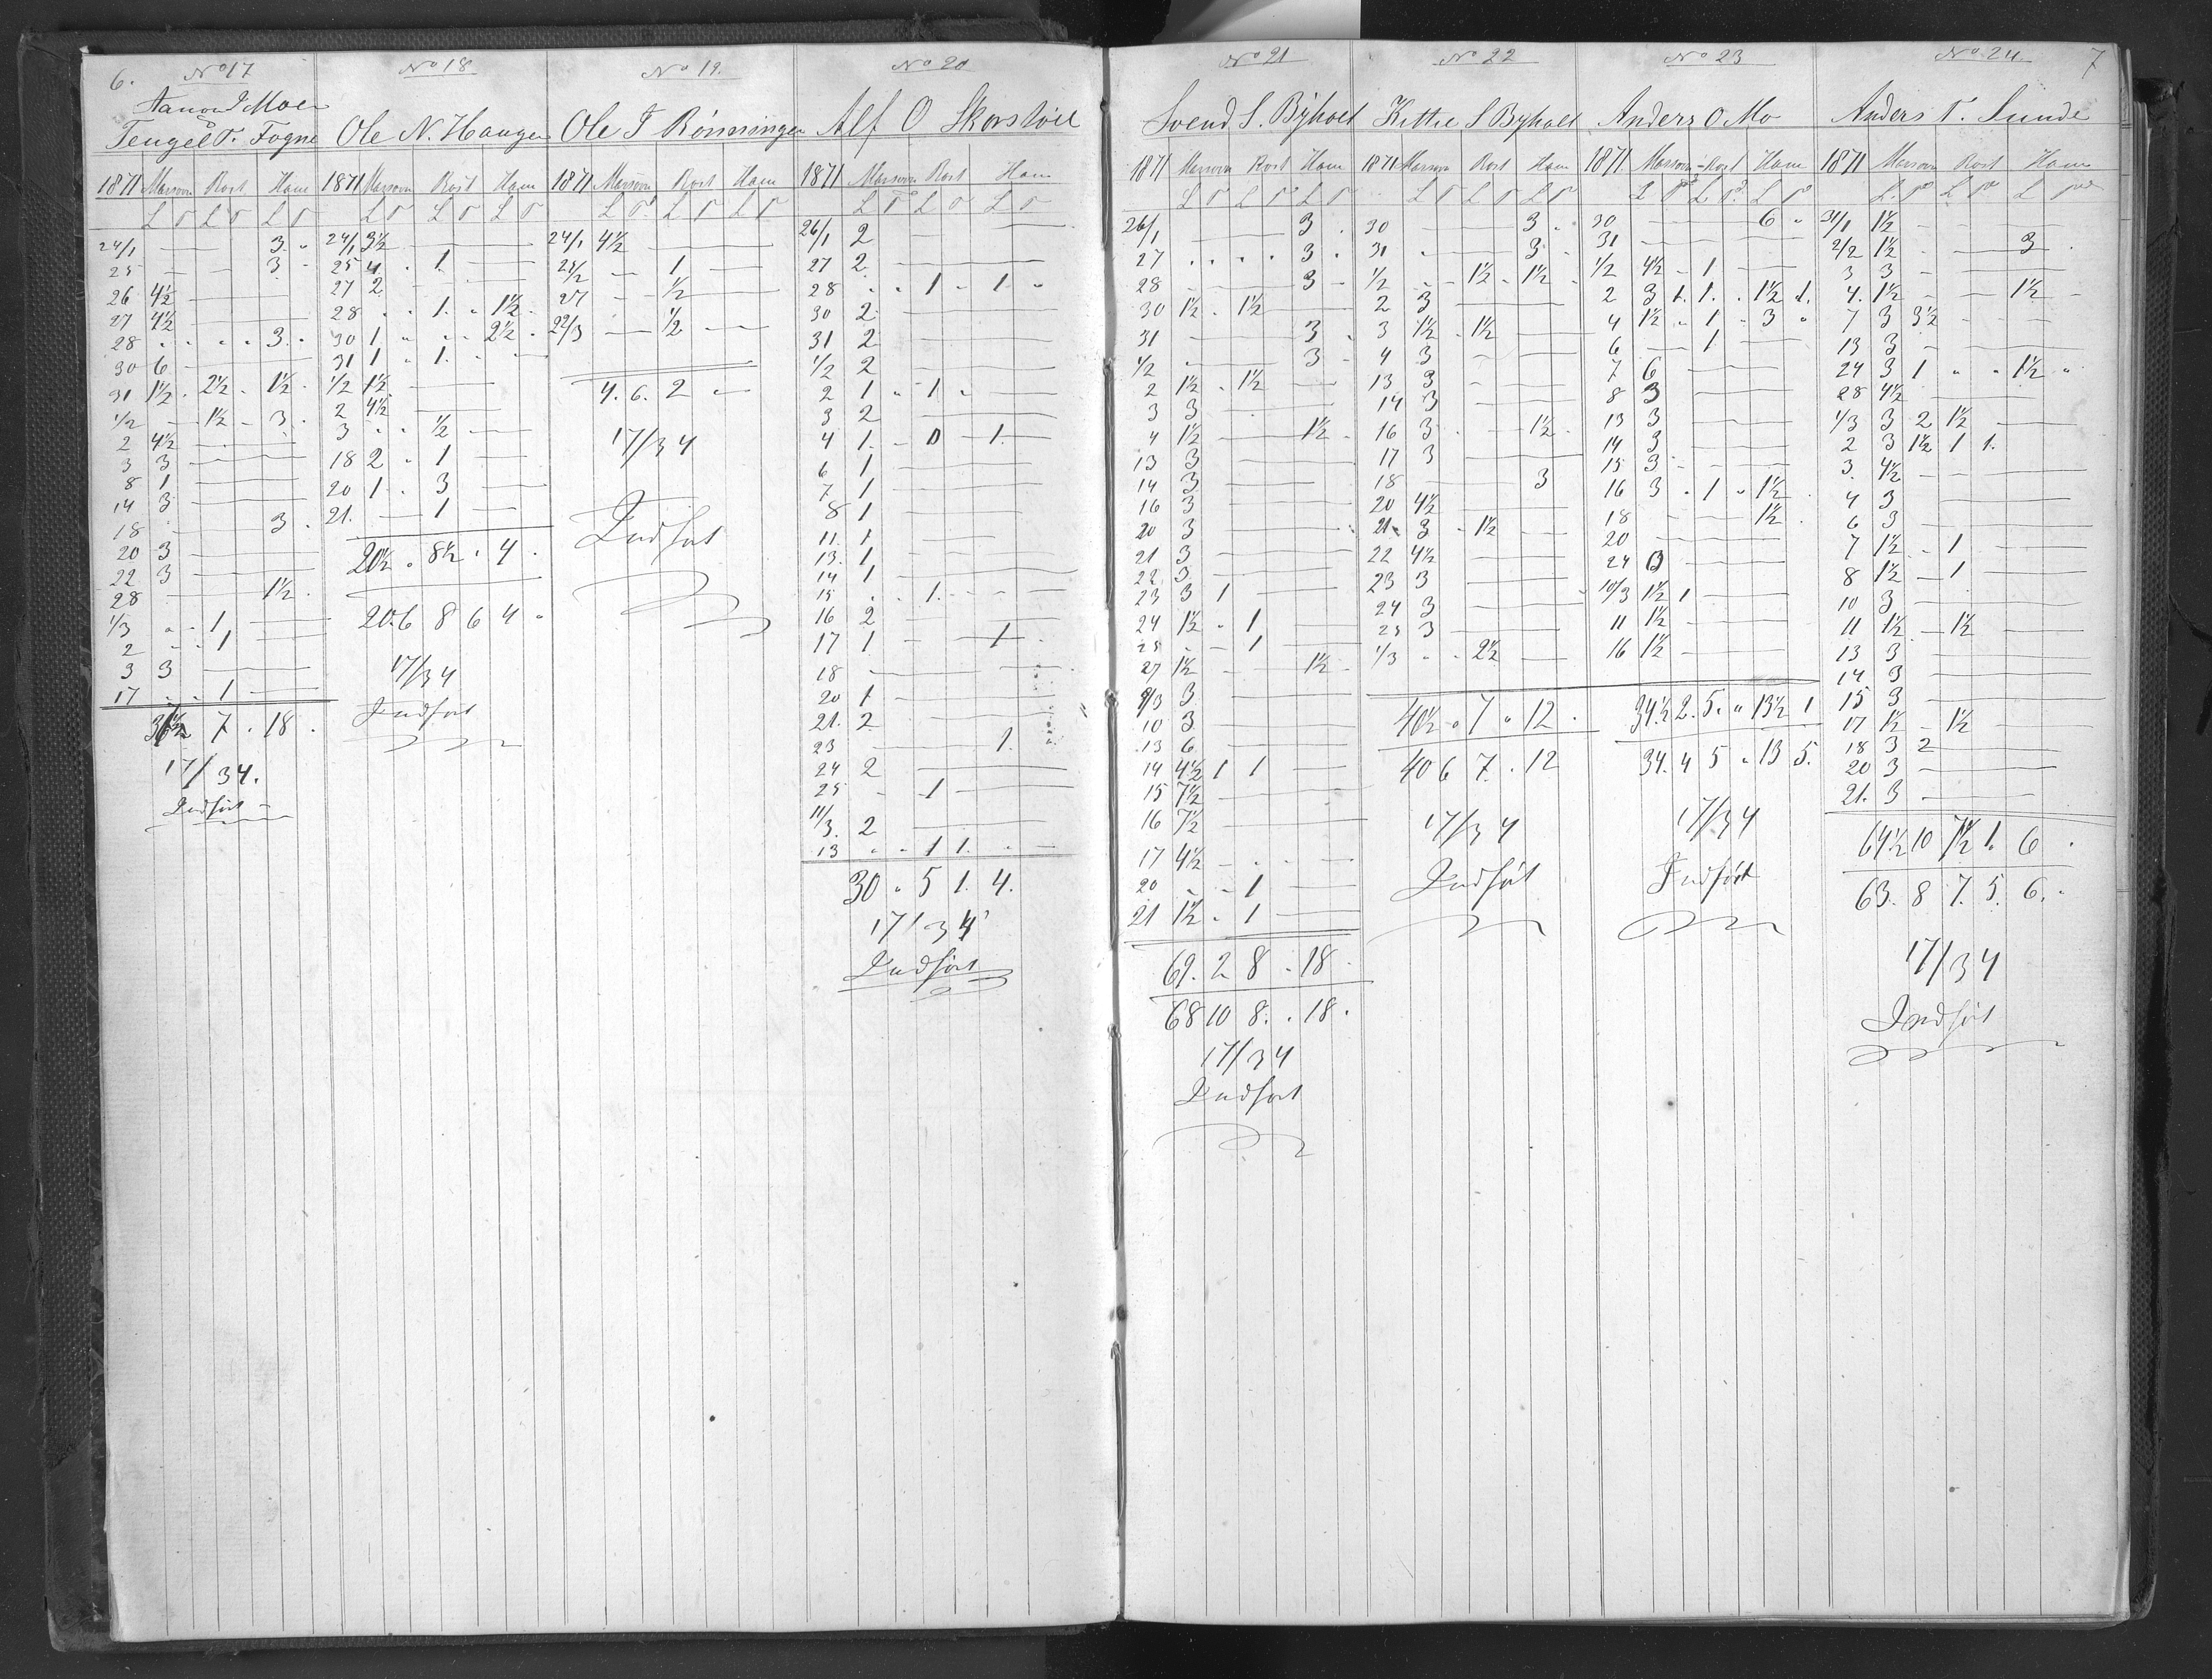 6.
No 17
Aanon J Moen
Tengel T. Fogne
1871 Masovn Rost Ham
L P L P L P
24/1 — — 3 "
25 — — 3 "
26 4½ — —
27 4½ — —
28 " " " " 3 "
30 6 — —
31 1½ " 2½ " 1½ "
1/2 — 1½ " 3 "
2 4½ — —
3 3 — —
8 1 — —
14 3 — —
18 — — 3 "
20 3 — —
22 3 — —
28 — — 1½ "
1/3 " " 1 —
2 " " 1 —
3 3 — —
17 " " 1 —
36½ 7 " 18 "
17/3 4.
Indført
No 18
Ole N. Haugen
1871 Masovn Rost Ham
L P L P L P
24/1 3½ — —
25 4 " 1 —
27 2 — —
28 " " 1 " 1½ "
30 1 " " " 2½ "
31 1 " 1 " "
1/2 1½ — —
2 4½ — —
3 " " ½ —
18 2 " 1 —
20 1 " 3 —
21. — 1 —
20½ " 8½ " 4 "
20 6 8 6 4 "
17/3 4
Indført
No 19.
Ole T Rönningen
1871 Masovn Rost Ham
L P L P L P
24/1 4½ — —
25/2 — 1 —
27 — ½ —
22/3 — ½ —
4. 6. 2 " —
17/3 4
Indført
No 20
Alf O Skorstöil
1871 Masovn Rost Ham
L P L P L P
26/1 2 — —
27 2 — —
28 " " 1 " 1 "
30 2 — —
31 2 — —
1/2 2 — —
2 1 " 1 " —
3 2 — —
4 1 " 0 — 1 —
6 1 — —
7 1 — —
8 1 — —
11. 1 — —
13. 1 — —
14 1 — —
15 " " 1 " — —
16 2 — —
17 1 — — 1 "
18 — — —
20 1 — —
21. 2 — —
23 — — 1.
24 2 — —
25 — 1 —
11/3. 2 — —
13 " " 1 1. " —
30 " 5 1. 4.
17/3 4
Indført
No 21
Svend S. Byholt
1871 Masovn Rost Ham
L P L P L P
26/1 — — 3 "
27 " " " " 3 "
28 — — 3 "
30 1½ " 1½ —
31 — — 3 "
1/2 " — 3 "
2 1½ " 1½ —
3 3 — —
4 1½ — 1½ "
13 3 — —
14 3 — —
16 3 — —
20 3 — —
21 3 — —
22 3 — —
23 3 1 —
24 1½ " 1 —
25 " " 1 —
27 1½ — 1½ "
9/3 3 — —
10 3 — —
13 6 — —
14 4½ 1 1 —
15 7½ — —
16 7½ — —
17 4½ — —
20 " " 1 —
21 1½ " 1 —
69. 2 8 " 18 "
68 10 8. " 18.
17/3 4
Indført
No 22
Kittil S Byholt
1871 Masovn Rost Ham
L P L P L P
30 — — 3 "
31 " — 3 "
1/2 " " 1½ " 1½ "
2 3 — —
3 1½ " 1½ —
4 3 — —
13 3 — —
14 3 — —
16 3 " — 1½ "
17 3 — —
18 — — 3
20 4½ — —
21 3 " 1½ —
22 4½ — —
23 3 — —
24 3 — —
25 3 — —
1/3 " " 2½ —
40½ " 7 " 12 "
40 6 7. " 12
17/3 4
Indført
No 23
Anders O Mo
1871 Masovn Rost Ham
L P L P L P
30 — — 6 "
31 — — —
1/2 4½ " 1 —
2 3 1. 1. " 1½ 1.
4 1½ " 1 " 3 "
6 — 1 —
7 6 — —
8 3 — —
13 3 — —
14 3 — —
15 3 — —
16 3 " 1 " 1½ "
18 — — 1½ "
20 — — —
24 0 — —
10/3 1½ 1 —
11 1½ — —
16 1½ — —
34½ 2. 5. " 13½ 1
34. 4 5 " 13 5.
17/3 4
Indført
No 24.
7
Anders T. Sunde
1871 Masovn Rost Ham
L P L P L P
31/1 1½ — —
2/2 1½ " — 3 "
3 3 — —
4. 1½ — 1½ —
7 3 3½ — —
13 3 — —
24 3 1 " " 1½ "
28 4½ — —
1/3 3 2 1½ —
2 3 1½ 1 1.
3. 4½ — —
4 3 — —
6 3 — —
7 1½ " 1 —
8 1½ — 1 —
10 3 — —
11 1½ — 1½ —
13 3 — —
14 3 — —
15 3 — —
17 1½ — 1½ —
18 3 2 —
20 3 — —
21. 3 — —
64½ 10 7½ 1. 6 "
63. 8 7. 5 6. "
17/3 4
Indført